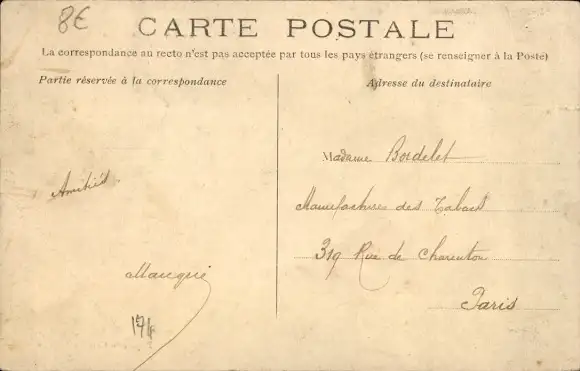 8€
CARTE POSTALE
La correspondance au recto n'est pas acceptée par tous les pays étrangers (se renseigner à la Poste)
Partie réservée à la correspondance
Adresse du destinataire
Amitiés
Madame Bordelet
Manufacture des Tabacs
319 Rue de Charenton
Paris